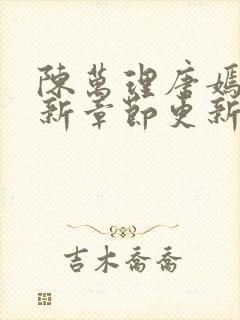 陳萬理唐嫣
新章節更新
吉木喬喬